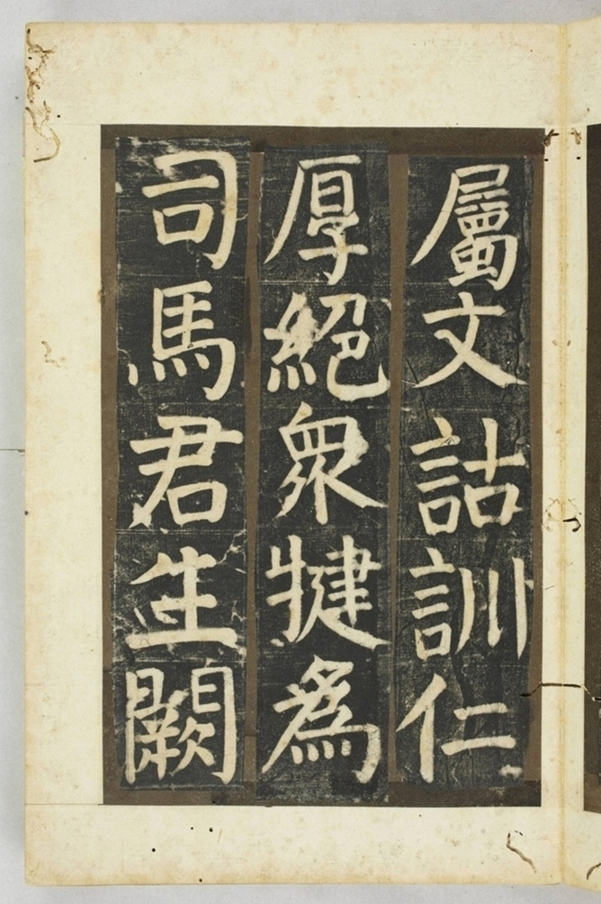 屬文詁訓仁
厚絕衆犍為
司馬君生闕